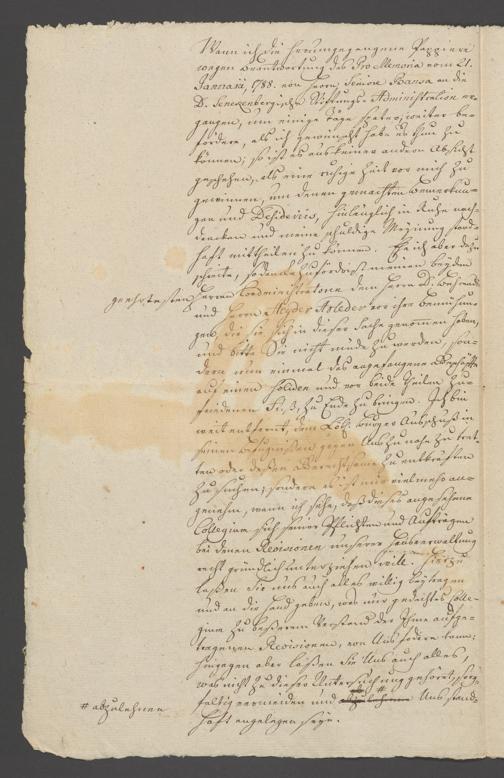 Wann ich die herumgegangene Pappiere
wegen Beantwortung des Pro Memoria vom 21.
Januarii, 1788. von Herrn Senior Bansa an die
D. Senckenbergische Stiftungs-Administration er-
gangen, um einige Tage später weiter be-
fördere, als ich gewünscht habe es thun zu
können; so ist es aus keiner andern Absicht
geschehen, als eine ruhige Zeit vor mich zu
gewinnen, um denen gemachten Bemerkun-
gen und Desideriis, hinlänglich in Ruhe nach-
dencken und meine schuldige Meynung stand-
haft mittheilen zu können. Ehe ich aber dazu
schreite, so dancke zuförderst meinen beyden
geehrtesten Herrn Coadministratorn dem Herrn D.
und Herrn vor ihre Bemühun-
gen, die sie sich in dieser Sache genommen haben,
und bitte Sie nicht müde zu werden, son-
dern nun einmal das angefangene Geschäffte
auf einen soliden und vor beide Theilen zu-
friedenen Fuß, zu Ende zu bringen. Ich bin
weit entfernt, dem Löbl. Bürger Ausschuß in
seinen Befugnißen gegen Uns zu nahe zu tret-
ten oder deßen Gerechtsame zu entkräften
zu suchen; sondern es ist mir vielmehr an-
genehm, wann ich sehe, daß dieses angesehene
Collegium sich seiner Pflichten und Aufträgen
bei denen Revisionen unserer Hausverwaltung
recht gründlich unterziehen will. Hierzu
laßen Sie uns auch alles willig beytragen
und an die Hand geben, was nur gedachtes Colle-
gium zu beßerem Verstand der Ihme aufge-
tragenen Revisionen, von Uns fodern kann;
hingegen aber laßen Sie Uns auch alles,
was nicht zu dieser Untersuchung gehöret, sorg-
fältig vermeiden und # Uns stand-
# abzulehnen
haft angelegen seyn.